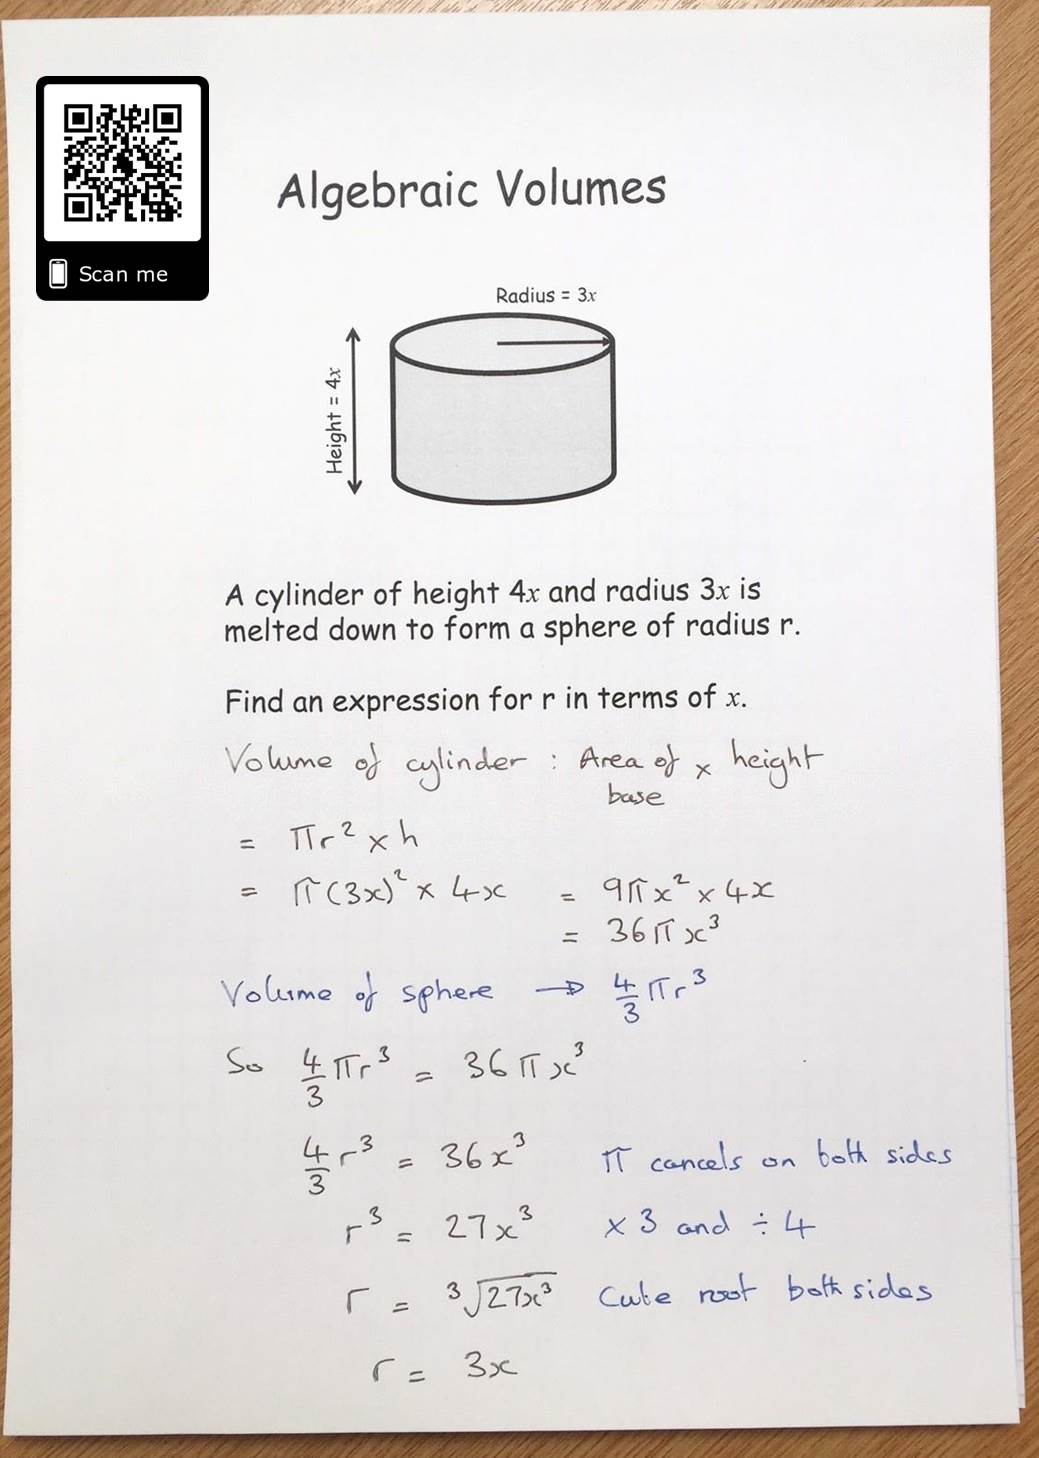 Scan me
Algebraic Volumes
Radius = 3x
Height = 4x
A cylinder of height 4x and radius 3x is
melted down to form a sphere of radius r.
Find an expression for r in terms of x.
Volume of cylinder : Area of base × height
= πr² × h
= π(3x)² × 4x = 9πx² × 4x
= 36πx³
Volume of sphere → 4/3 πr³
So 4/3 πr³ = 36πx³
4/3 r³ = 36x³ π cancels on both sides
r³ = 27x³ × 3 and ÷ 4
r = ³√27x³ Cube root both sides
r = 3x